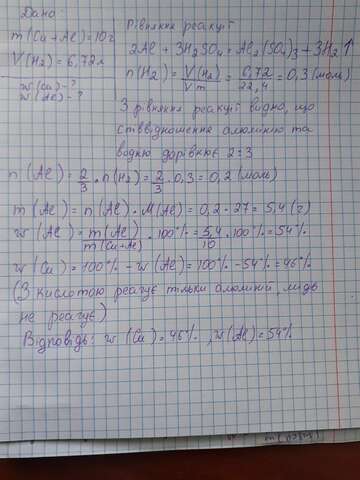 Дано:
m(Cu+Al)=10г
V(H₂)=6,72л
w(Cu)-?
w(Al)-?
Рівняння реакції
2Al + 3H₂SO₄ = Al₂(SO₄)₃ + 3H₂↑
n(H₂) = V(H₂)/Vm = 6,72/22,4 = 0,3 (моль)
З рівняння реакції видно, що
співвідношення алюмінію та
водню дорівнює 2:3
n(Al) = 2/3 · n(H₂) = 2/3 · 0,3 = 0,2 (моль)
m(Al) = n(Al) · M(Al) = 0,2 · 27 = 5,4 (г)
w(Al) = m(Al)/m(Cu+Al) · 100% = 5,4/10 · 100% = 54%
w(Cu) = 100% - w(Al) = 100% - 54% = 46%
(З кислотою реагує тільки алюміній, мідь
не реагує)
Відповідь: w(Cu) = 46%, w(Al) = 54%